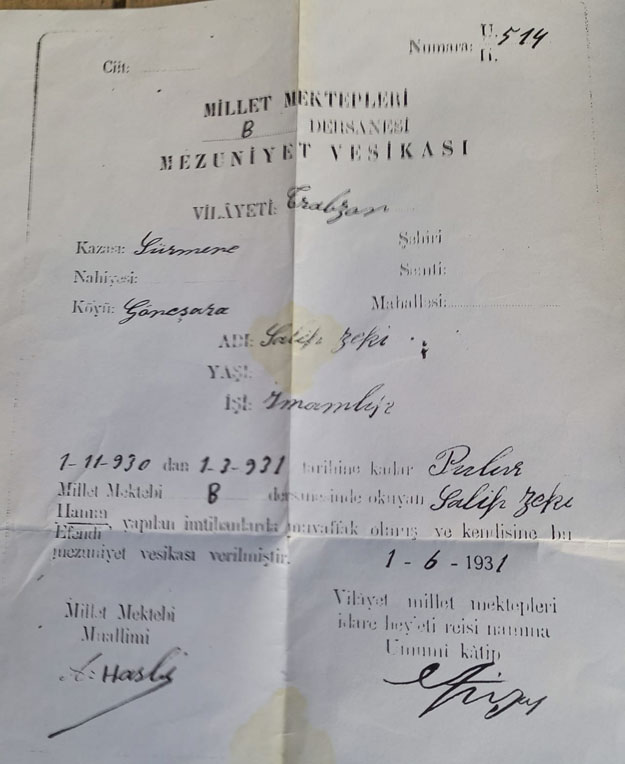 Cilt:
Numara: U. 514
H.
MİLLET MEKTEPLERİ
B DERSANESİ
MEZUNİYET VESİKASI
VİLÂYETİ: Trabzon
Kazası: Sürmene
Şehiri
Nahiyesi:
Semti:
Köyü: Göneşara
Mahallesi:
ADI: Salih Zeki
YAŞI:
İŞİ: İmamlık
1-11-930 dan 1-3-931 tarihine kadar
Millet Mektebi B dersanesinde okuyan Salih Zeki
Hanım
Efendi yapılan imtihanlarda muvaffak olmuş ve kendisine bu
mezuniyet vesikası verilmiştir. 1 - 6 - 1931
Millet Mektebi
Muallimi
Vilâyet millet mektepleri
idare hey'eti reisi namına
Umumî kâtip